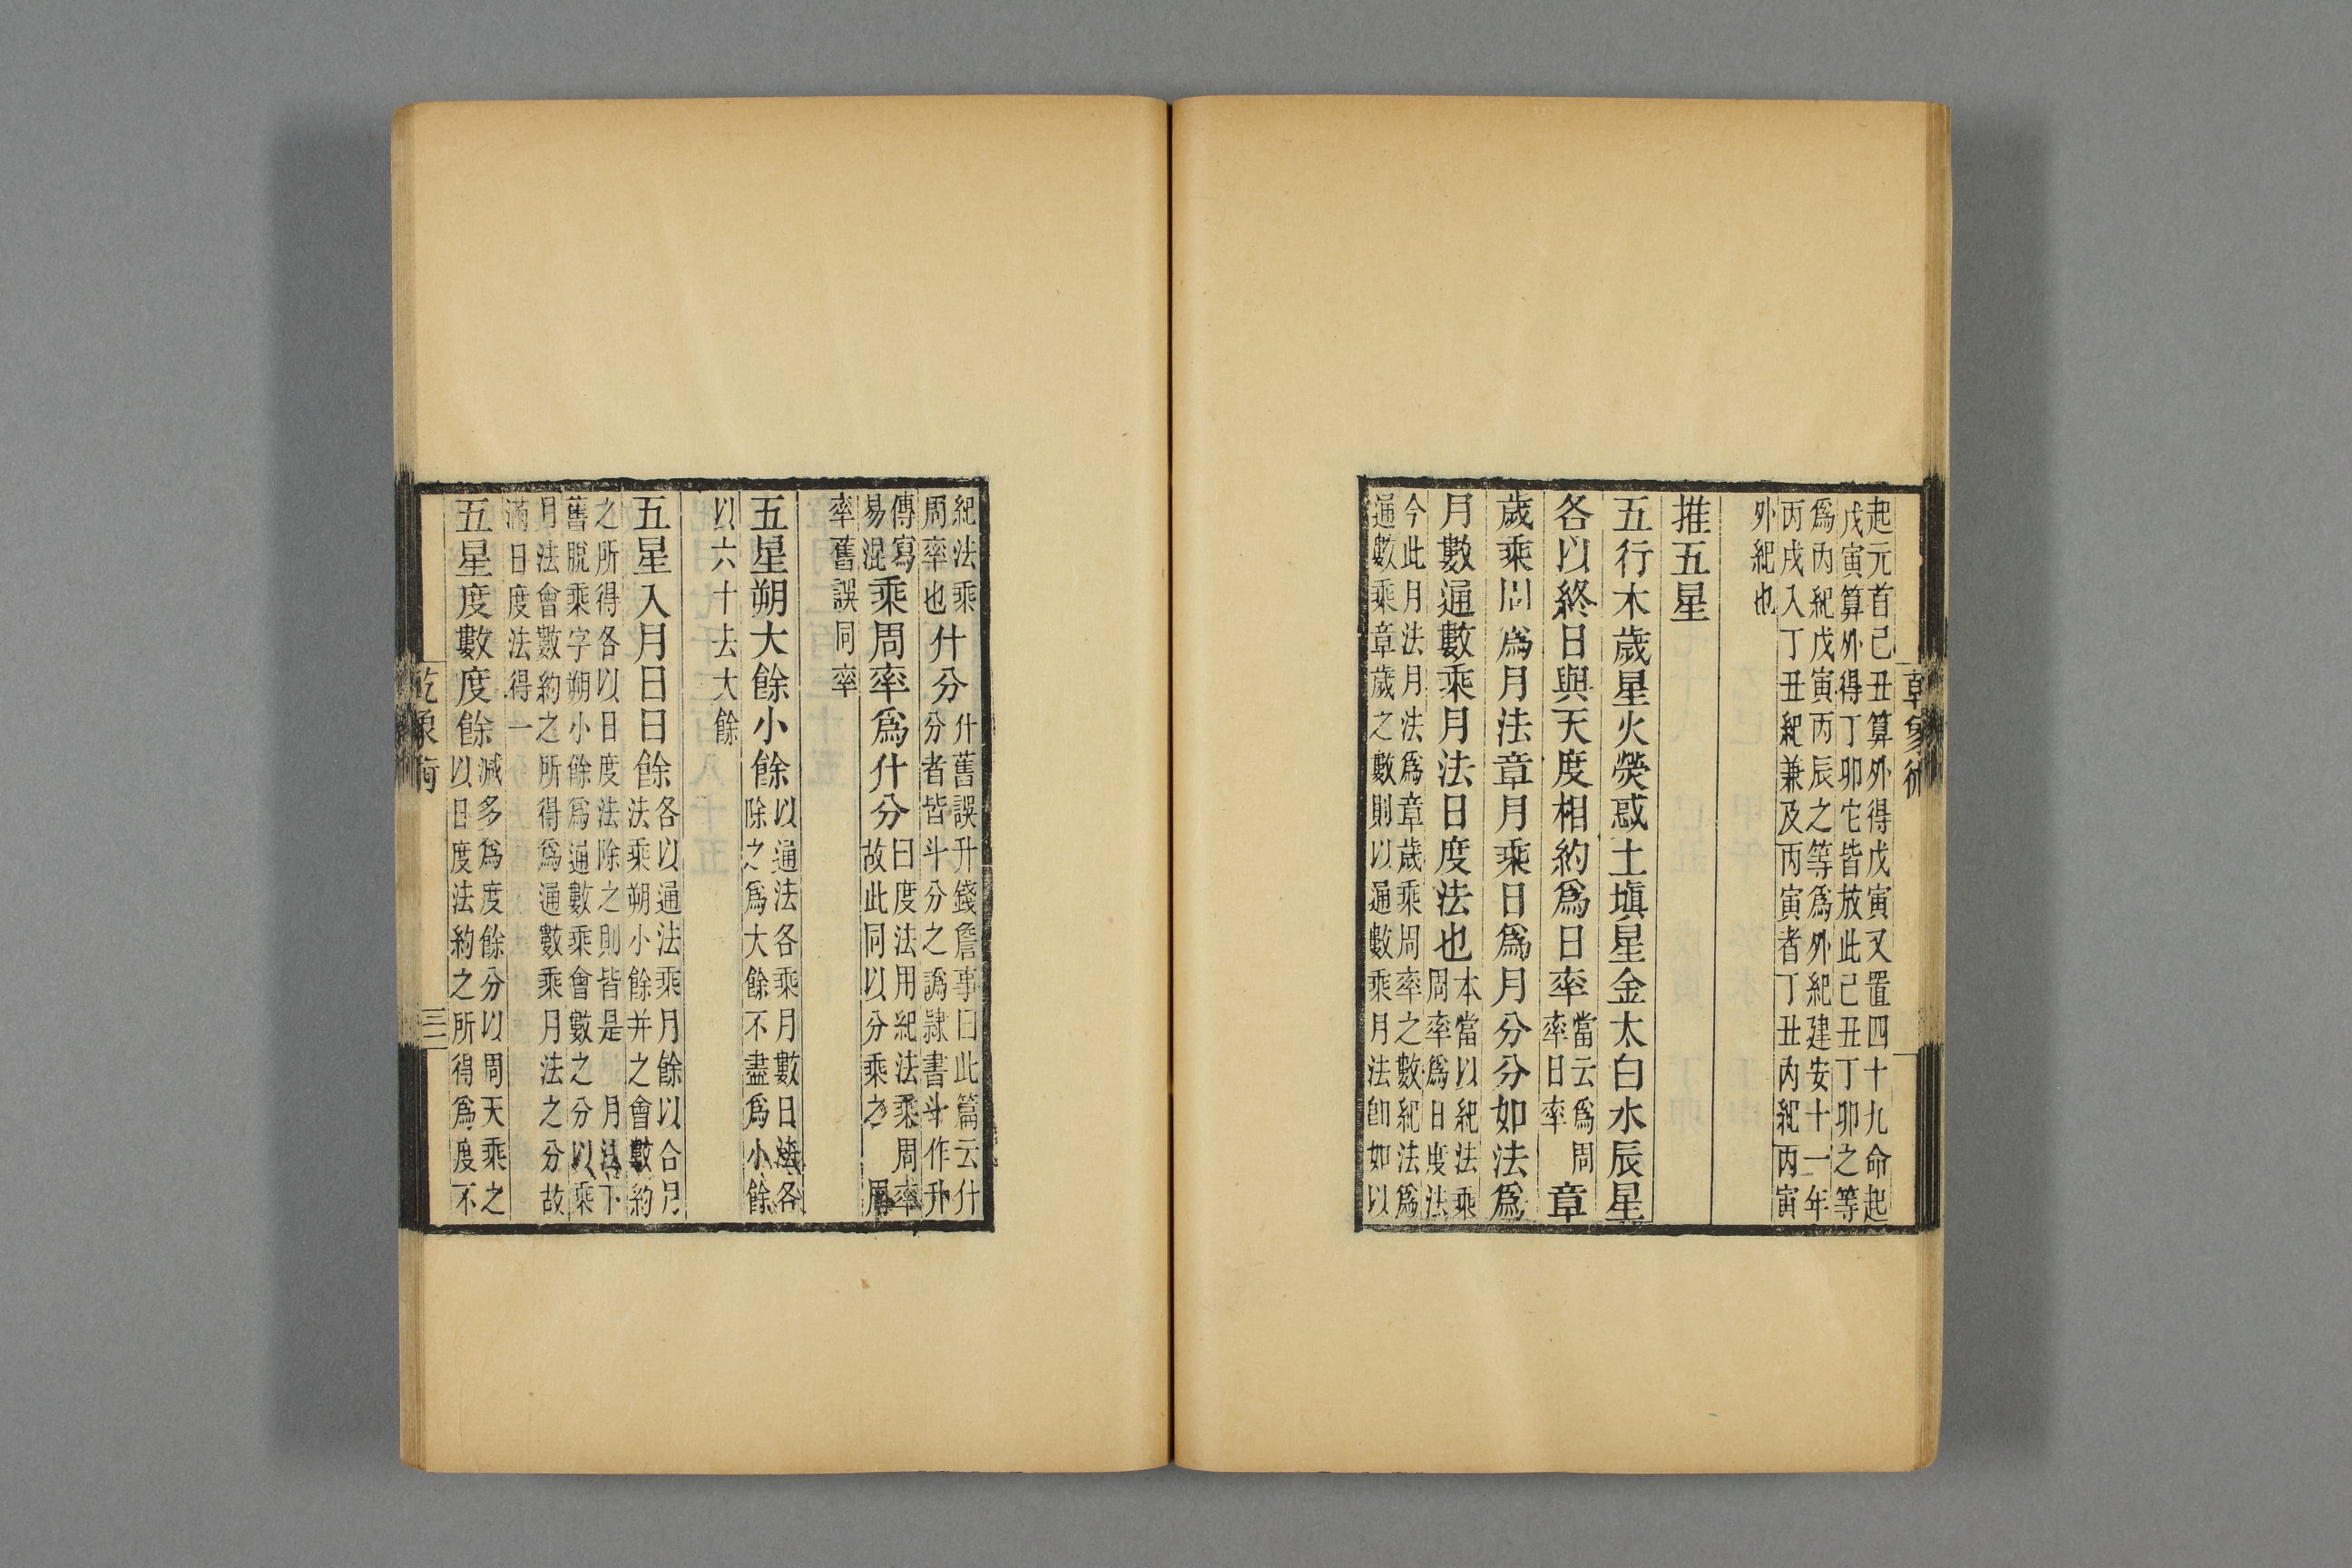 起元首己丑算外得戊寅又置四十九命起
戊寅算外得丁卯它皆放此己丑丁卯之等
爲丙紀戊寅丙辰之等爲外紀建安十一年
丙戌入丁丑紀兼及丙寅者丁丑內紀丙寅
外紀也
推五星
五行木歲星火熒惑土塡星金太白水辰星
各以終日與天度相約爲日率當云爲周率日率章
歲乘周爲月法章月乘日爲月分分如法爲
月數通數乘月法日度法也本當以紀法乘周率爲日度法
今此月法月法爲章歲乘周率之數紀法爲
通數乘章歲之數則以通數乘月法卽如以
紀法乘
周率也什分什舊誤升錢詹事曰此篇云什分者皆斗分之譌隷書斗作升
傳寫易混乘周率爲什分曰度法用紀法乘周率故此同以分乘之 周
率舊誤同率
五星朔大餘小餘以通法各乘月數日法各除之爲大餘不盡爲小餘
以六十去大餘
五星入月日日餘各以通法乘月餘以合月法乘朔小餘并之會數約
之所得各以日度法除之則皆是 月法下
舊脫乘字朔小餘爲通數乘會數之分以乘
月法會數約之所得爲通數乘月法之分故
滿日度法得一
五星度數度餘減多爲度餘分以周天乘之以日度法約之所得爲度不
乾象術
三